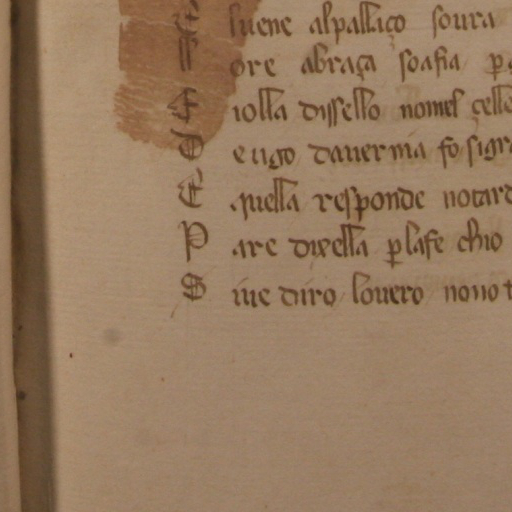 suene alpallaço soura
ore abraça soasia
E iolla dissello nomel çelle
O eugo dauermia fo sigra
E quella responde notard
P are dixella p lafe chio
S iue diro louero nono t